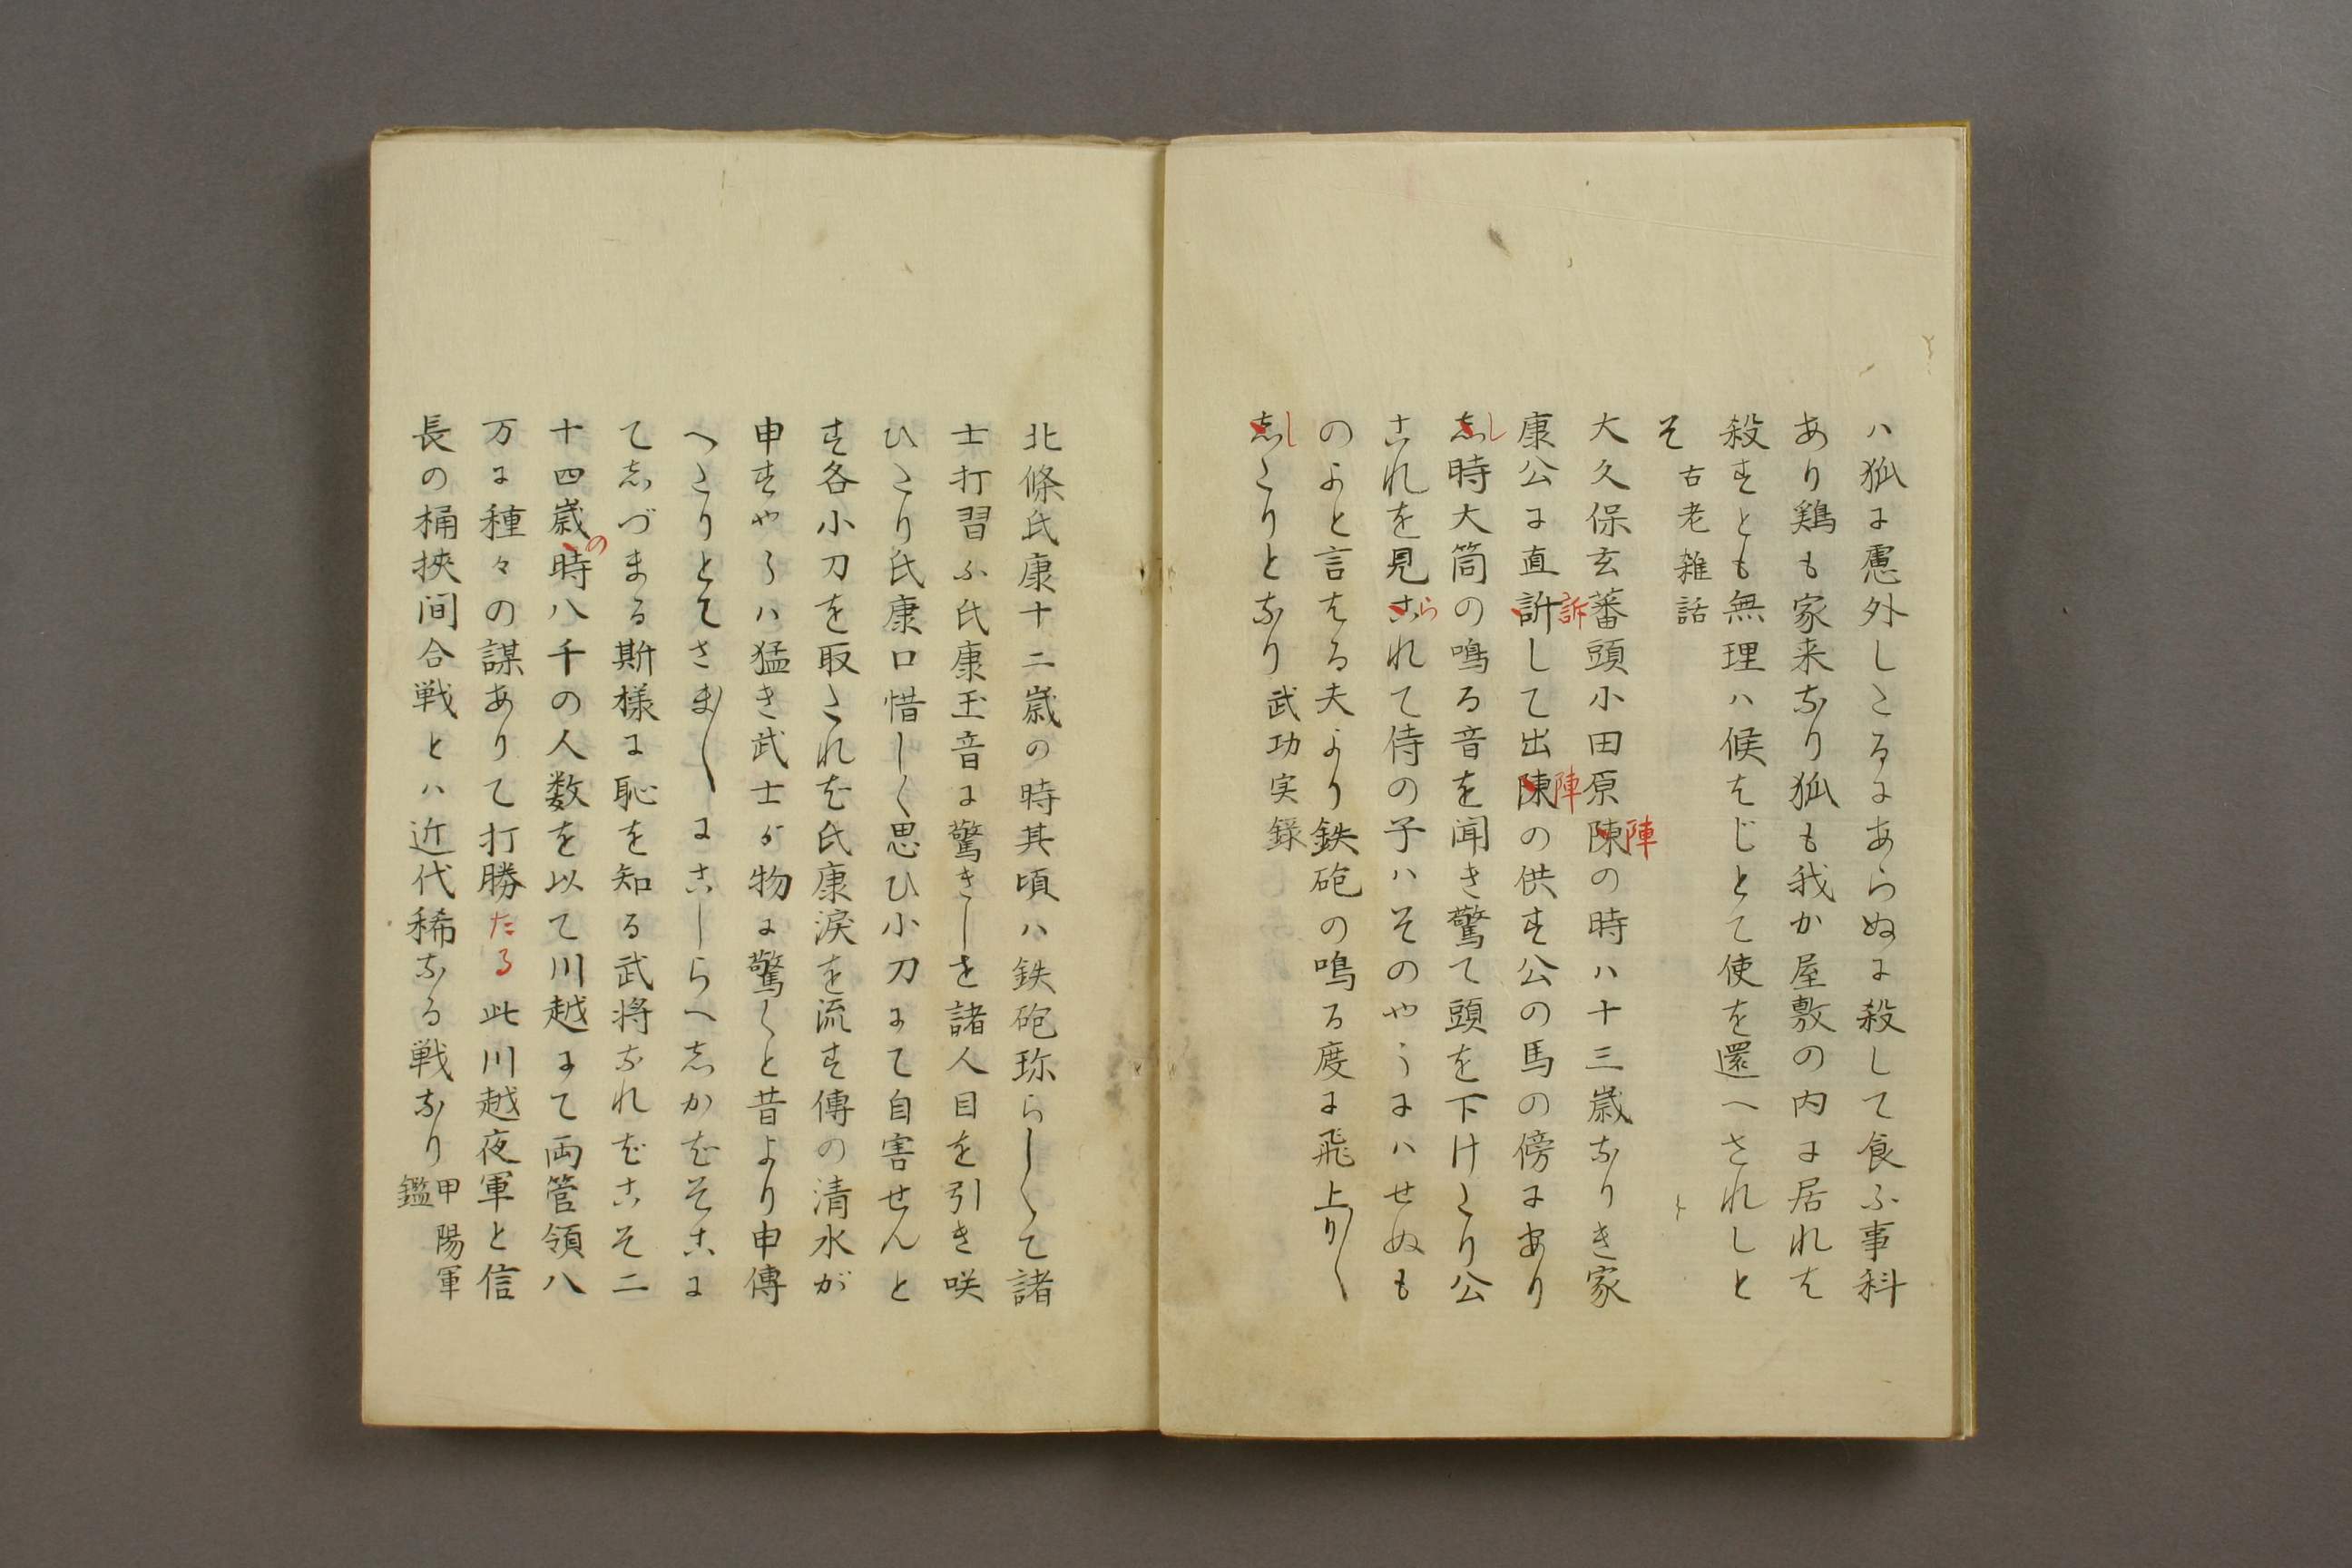 ハ狐に慮外したるにあらぬに殺して食ふ事科
あり鶏も家来なり狐も我か屋敷の内に居れは
殺すとも無理ハ候はじとて使を還へされしと
そ 古老雑話
大久保玄蕃頭小田原陳陣の時ハ十三歳なりき家
康公に直訢訴して出陳陣の供す公の馬の傍にあり
志し時大筒の鳴る音を聞き驚て頭を下けたり公
これを見こられて侍の子ハそのやうにハせぬも
のよと言はる夫より鉄砲の鳴る度に飛上り〳〵
志したりとなり 武功実録
北條氏康十二歳の時其頃ハ鉄砲珎らしくて諸
士打習ふ氏康玉音に驚きしを諸人目を引き咲
ひたり氏康口惜しく思ひ小刀にて自害せんと
す各小刀を取たれは氏康涙を流す傳の清水が
申すやうハ猛き武士が物に驚くと昔より申傳
へたりとてさま〳〵にこしらへしかばそこに
てしづまる斯様に恥を知る武将なればこそ二
十四歳の時八千の人数を以て川越にて両管領八
万に種々の謀ありて打勝たる此川越夜軍と信
長の桶挾间合戦とハ近代稀なる戦なり 甲陽軍
鑑